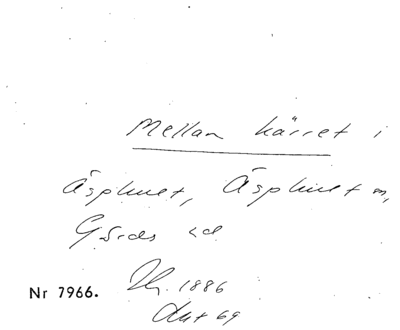 Mellan kärret i
Äsphult, Äsphult sn,
Gärds hd
Nr 7966. 1886
Akt 69